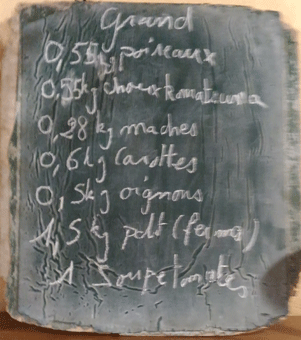 Grand
0,55kg poireaux
0,55kg choux komatsuna
0,28 kg maches
0,6kg Carottes
0,5kg oignons
1,5 kg pdt (ferme)
1 Soupe tomates